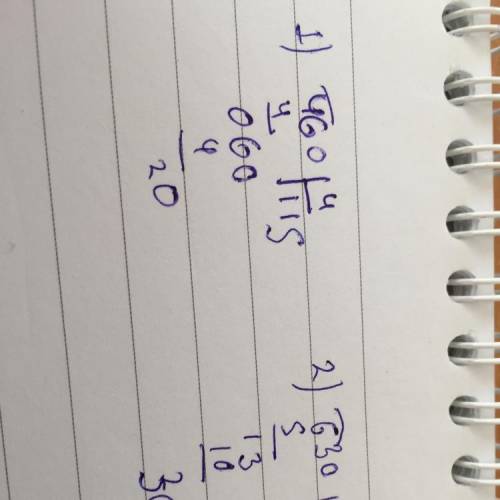 1) 460 | 4
4 115
060
4
20
2) 630
5
13
10
30